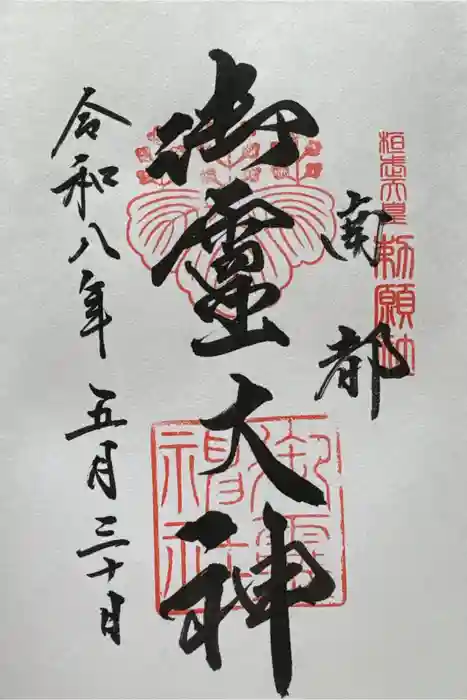 桓武天皇勅願社
南都
御霊大神
御霊神社
令和八年五月三十日